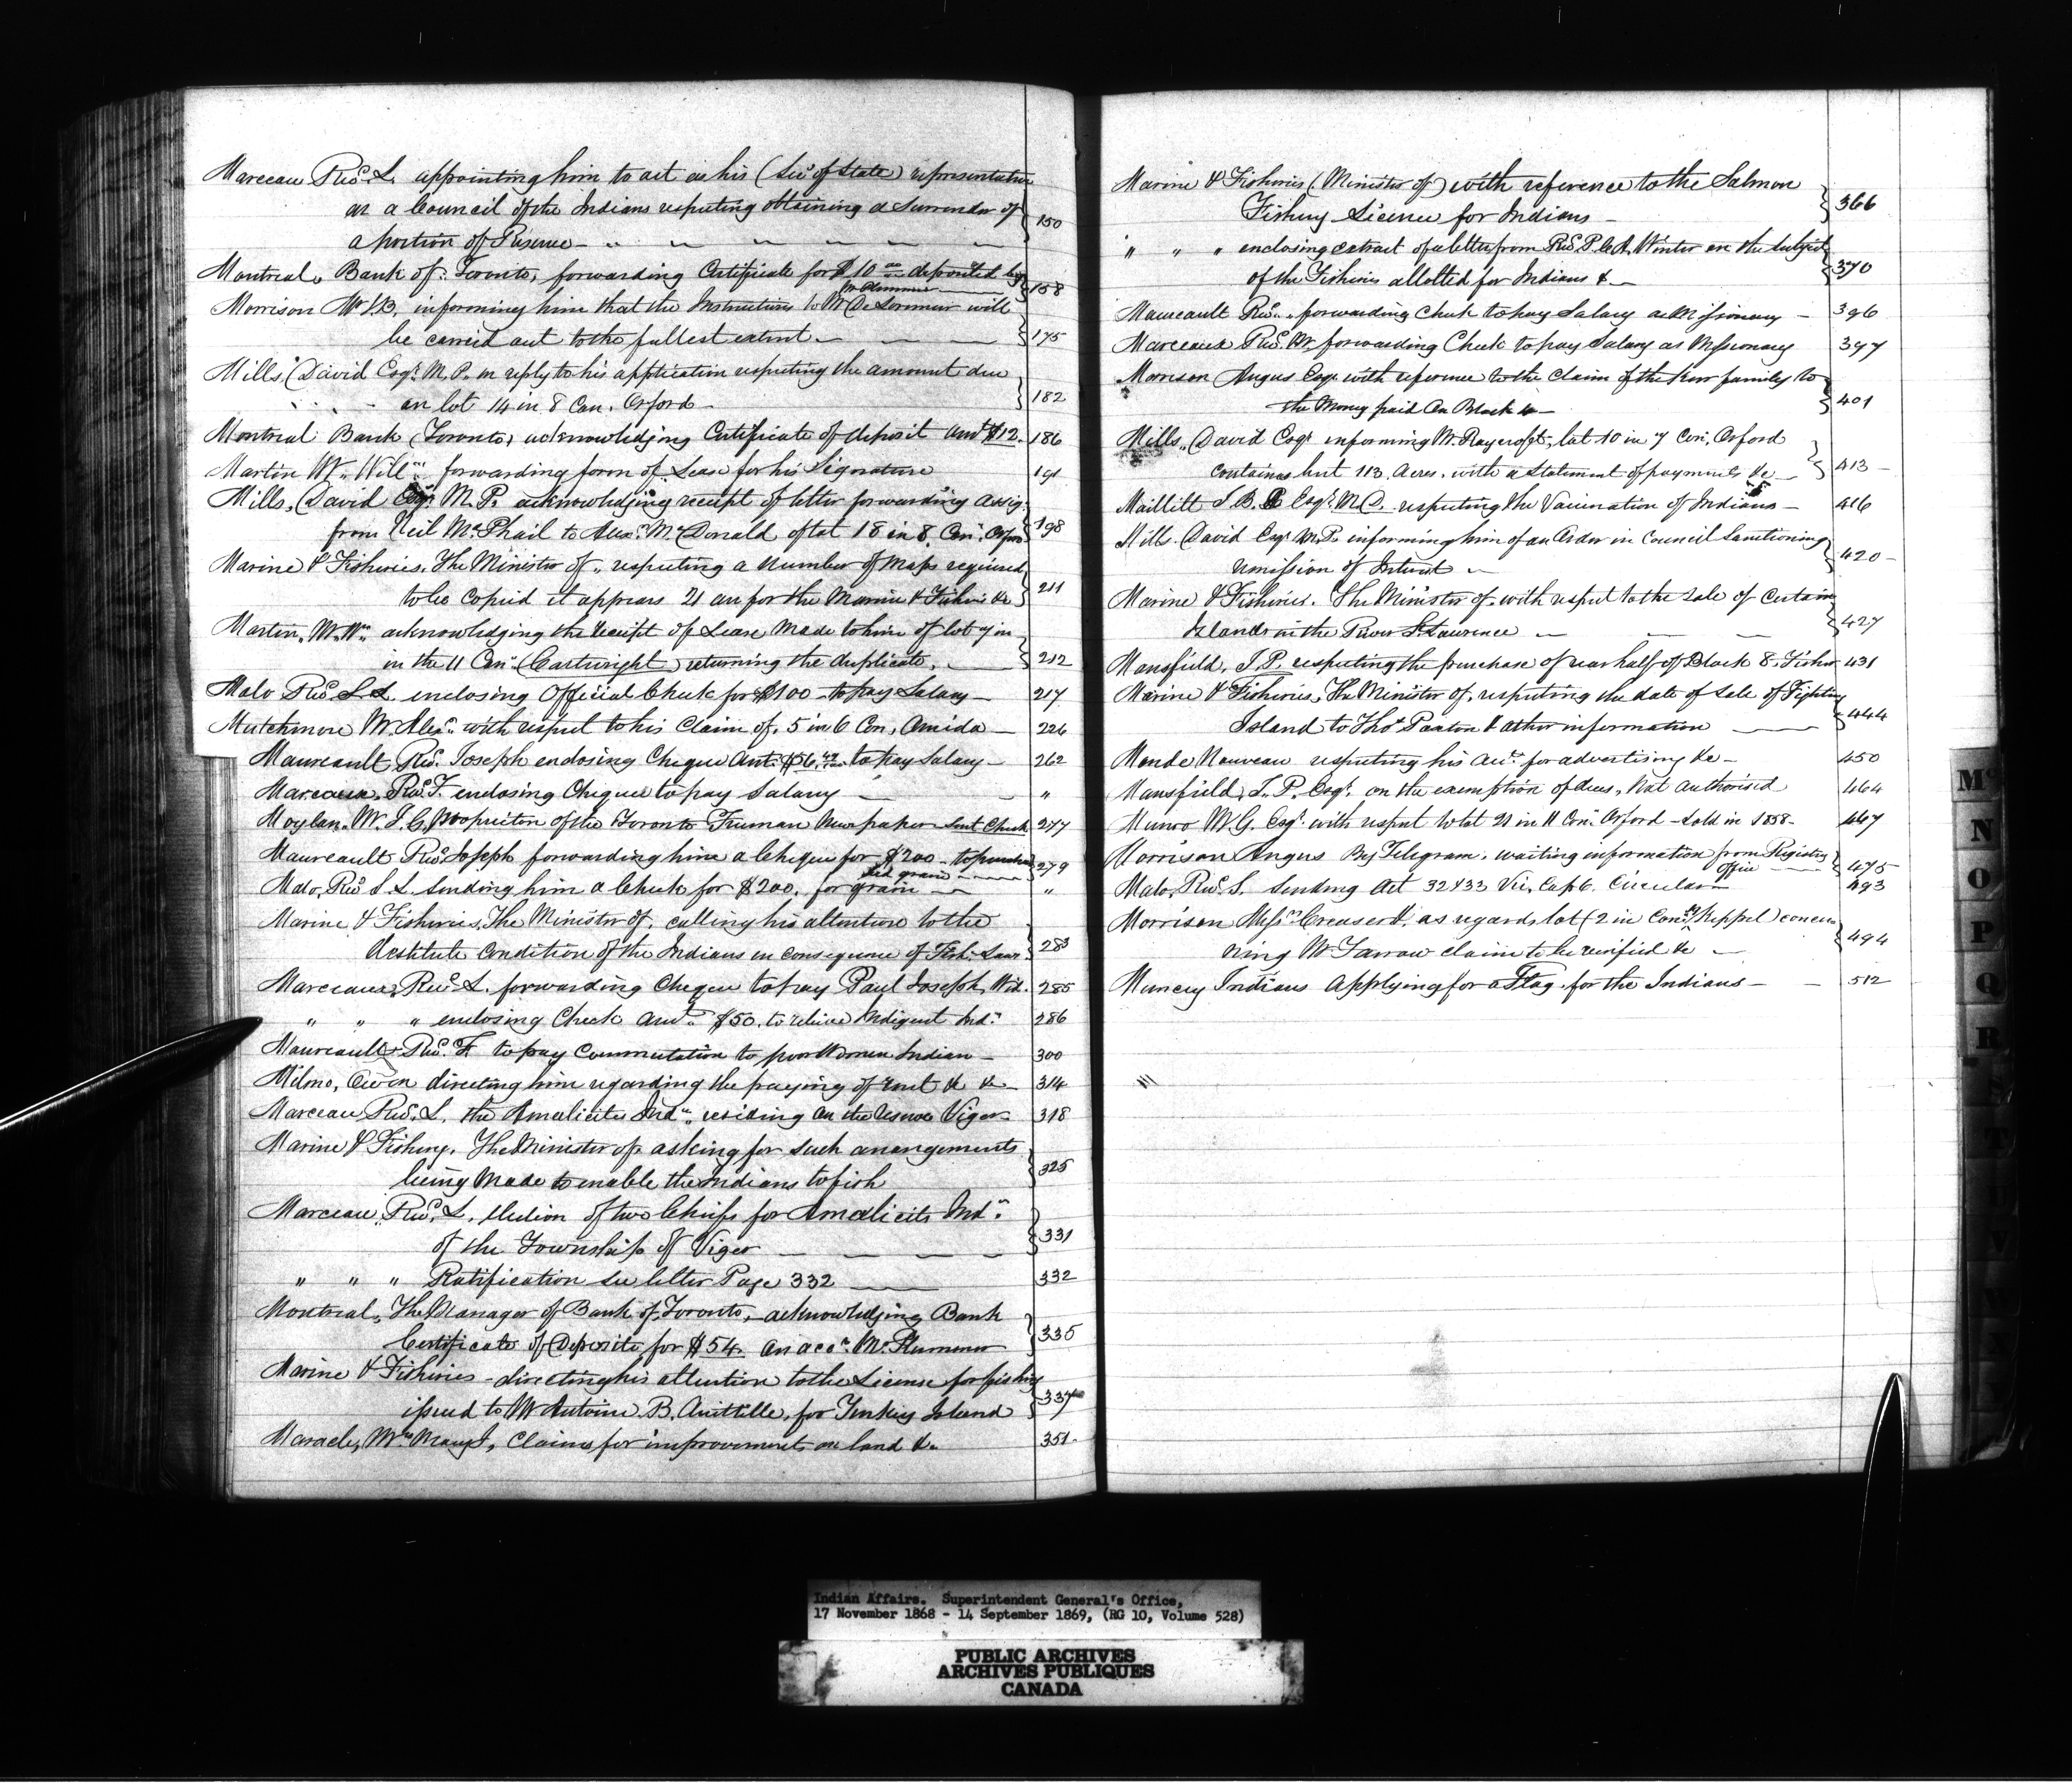 Marceau Revd. L. appointing him to act as his (Sec. of State) representative
at a Council of the Indians respecting obtaining a Surrender of
a portion of Reserve 150
Montreal, Bank of Toronto, forwarding Certificate for $10 00 deposited by
Mr Plummer 158
Morrison Mr informing him that the Instructions to Mr De Lormier will
be carried out to the fullest extent 175
Mills, (David Esqr. M.P. in reply to his application respecting the amount due
on lot 14 in 8 Con. Orford 182
Montreal Bank (Toronto) acknowledging Certificate of deposit amt $12. 186
Martin Mr Willm. forwarding form of Lease for his Signature 191
Mills, (David Esqr. M.P. acknowledging receipt of letter forwarding assig.
from Neil McPhail to Alexr. McDonald of lot 18 in 8 Con. Orford 198
Marine & Fisheries, The Minister of, respecting a number of Maps required
to be copied it appears 21 are for the Marine & Fisheries &c 211
Martin, Mr. Wm. acknowledging the receipt of Lease made to him of lot 7 in
in the 11 Con. (Cartwright) returning the duplicate. 212
Malo Revd. L.S. enclosing Official Check for $100 to pay Salary 217
Mutchmore Mr. Alexr. with respect to his claim of 5 in 6 Con, Amida 226
Maureault Revd. Joseph enclosing Cheque Amt. $56. to pay Salary 262
Marceau, Revd. F. enclosing Cheque to pay Salary "
Moylan, Mr. J.G. Proprietor of the Toronto Freeman Newspaper Sent Check 277
Maureault Revd. Joseph forwarding him a Cheque for $200 to purchase
seed grain 279
Malo, Revd. S.L. sending him a Check for $200. for grain "
Marine & Fisheries, The Minister of. calling his attention to the
destitute condition of the Indians in consequence of Fish. Laws 283
Marceau, Revd. L. forwarding Cheque to pay Paul Joseph, Wid. 285
" " " enclosing Check amt. $50. to relieve Indigent Inds. 286
Maureault Revd. to pay Commutation to poor Women Indian 300
Milmo, Owen directing him regarding the paying of rent &c &c 314
Marceau Revd. L. the Amalicite Inds. residing on the reserve Viger 318
Marine & Fishery, The Minister of, asking for such arrangements
being made to enable the Indians to fish 325
Marceau, Revd. L. election of two Chiefs for Amalicite Inds.
of the Township of Viger 331
" " " Ratification see letter Page 332 332
Montreal, The Manager of Bank of Toronto, acknowledging Bank
Certificate of Deposit for $54. on acct. Mr. Plummer 335
Marine & Fisheries directing his attention to the License for fishing
issued to Mr Antoine B. for Turkey Island 337
Maracle, Mrs Mary J, Claims for improvements on land &c 351
Marine & Fisheries (Minister of) with reference to the Salmon
Fishery Licence for Indians 366
" " " enclosing extract of a letter from Revd. P. Winter on the subject
of the Fisheries allotted for Indians &c 370
Maureault Revd. " forwarding Check to pay Salary as Missionary 396
Marceau Revd. forwarding Check to pay Salary as Missionary 397
Morrison Angus Esqr. with reference to the Claim of the Kerr family to
the Money paid on Block 4 401
Mills, David Esqr. informing Mr. Raycroft, lot 10 in 7 Con, Orford
contains but 113 Acres, with a Statement of payments &c 413
Maillitt J.B. Esqr. M.D. respecting the Vaccination of Indians 416
Mills David Esqr. M.P. informing him of an Order in Council Sanctioning
remission of Interest 420
Marine & Fisheries. The Minister of, with respect to the sale of Certain
Islands in the River St. Lawrence 427
Mansfield, T.P. respecting the purchase of rear half of Block 8, Fisher 431
Marine & Fisheries, The Minister of, respecting the date of sale of Fighting
Island to Thos. Paxton & other information 444
Monde Nouveau respecting his acct. for advertising &c 450
Mansfield, T.P. Esqr. on the exemption of dues, Not authorised 464
Munro M.G. Esqr. with respect to lot 21 in 11 Con. Orford sold in 1858 467
Morrison Angus By Telegram, waiting information from Registry
Office 475
Malo, Revd. S. sending Act 32 & 33 Vic, Cap 6. Circular 493
Morrison Messrs. Creasor & as regards lot (2 in Con. Keppel) concer
ning Mr Farrow claim to be verified &c 494
Muncey Indians applying for a Flag for the Indians 512
Mc
N
O
P
Q
R
S
T
Indian Affairs. Superintendent General's Office,
17 November 1868 - 14 September 1869, (RG 10, Volume 528)
PUBLIC ARCHIVES
ARCHIVES PUBLIQUES
CANADA